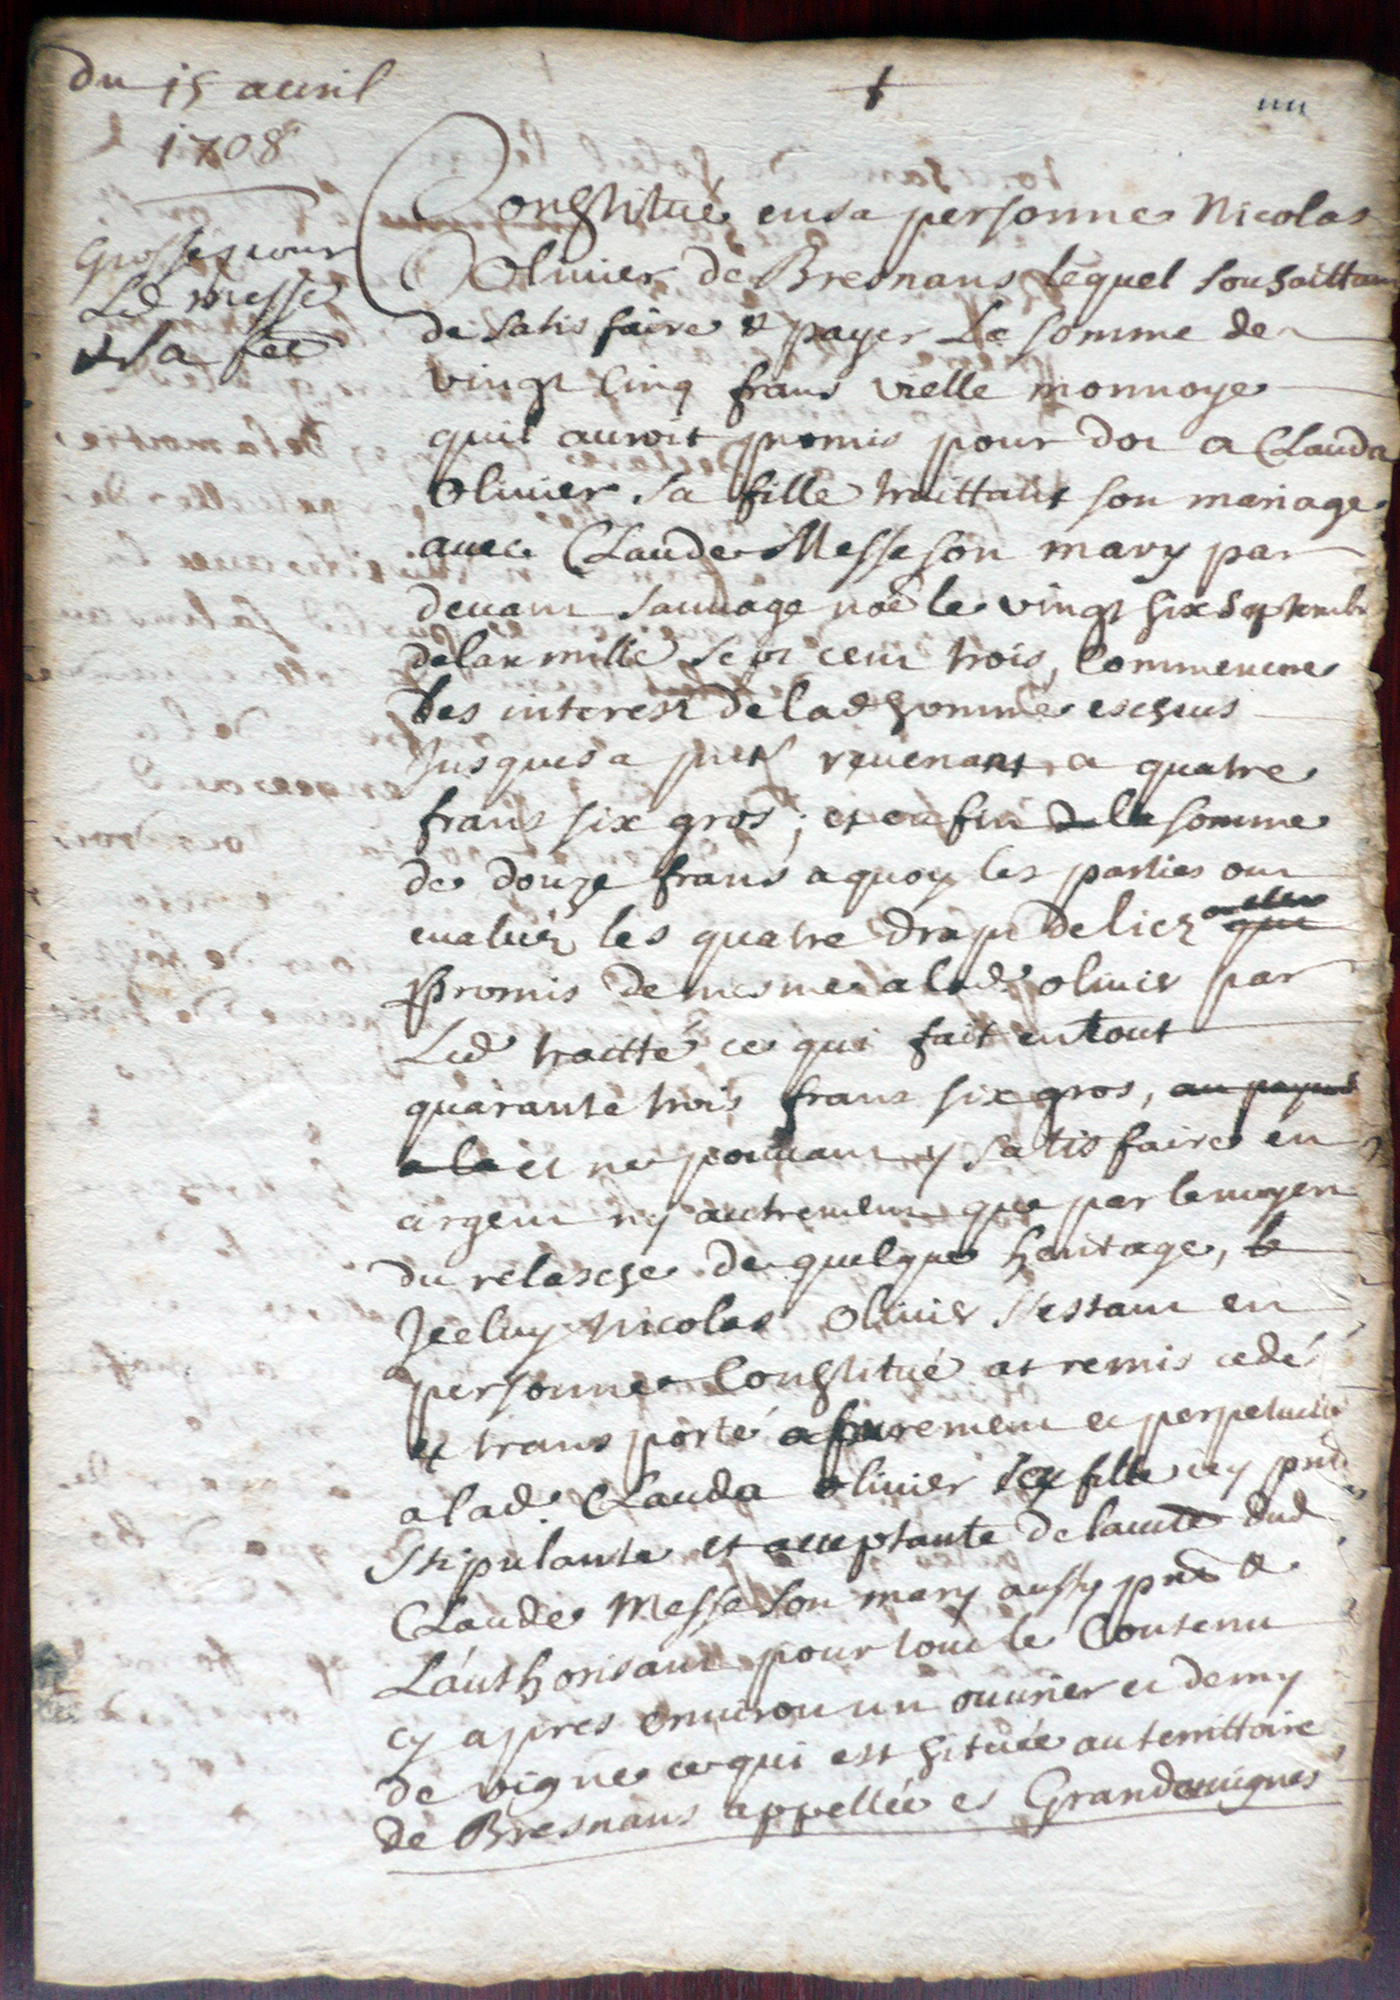 du 15 auril
1708
Grosse pour
Led messe
& sa fee
Constitué en sa personne Nicolas
Oliuier de Bresnans lequel souhaittan
de satisfaire & payer La somme de
vingt cinq frans vielle monnoye
quil auroit promis pour dot a Clauda
Oliuier sa fille traittant son mariage
auec Claude Messe son mary par
deuant Sauuage noe le vingt six septembre
de lan mille sept cent trois, Comme une
des interest de lad somme escheus
Jusques a pnt reuenant a quatre
frans six gros; et en fin de la somme
de douze frans a quoy les parties ont
evalüez les quatre drapt de lict
Promis de mesme a lad. Oliuier par
Led traitté ce qui fait en tout
quarante trois frans six gros, au payer
a la et ne pouuant y satisfaire en
argent ny autrement que par le moyen
du relasche de quelque heritage, le
Jceluy Nicolas Oliuier s'estant en
personne Constitué at remis cedé
et transporté purement et perpetuele
a lad. Clauda Oliuier sa fille icy pnte
stipulante et acceptante de lauté dud
Claude Messe son mary aussy pnt &
L'authorisant pour tout le Contenu
cy apres enuiron un ouurier et demy
de vigne ce qui est situéé au territtoire
de Bresnans appellée es Grandeuignes